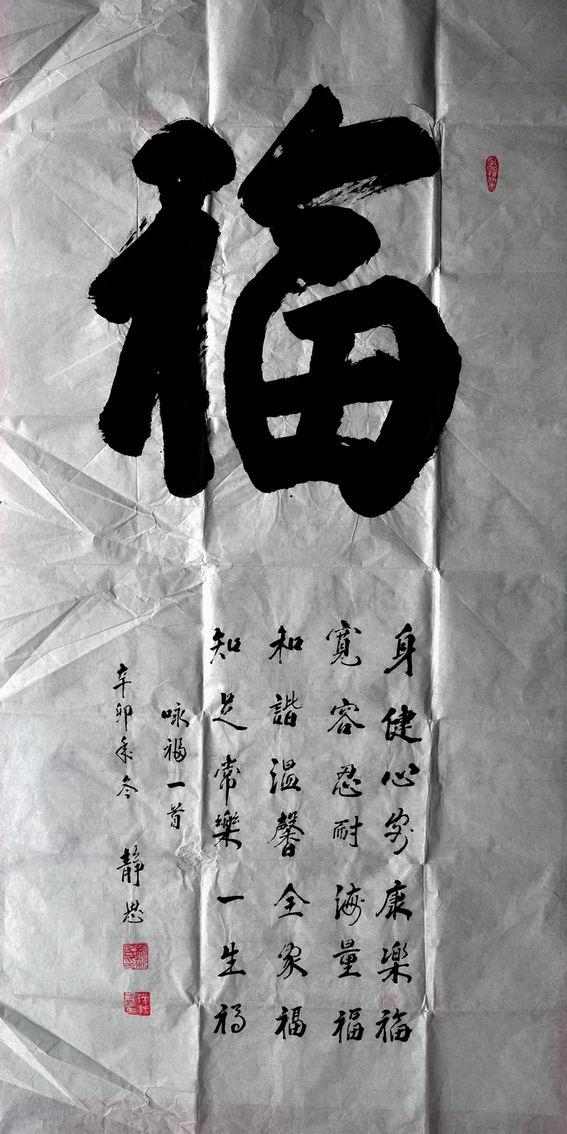 福
身健心安康樂福
寬容忍耐海量福
和諧溫馨全家福
知足常樂一生福
咏福一首
辛卯年冬 靜思